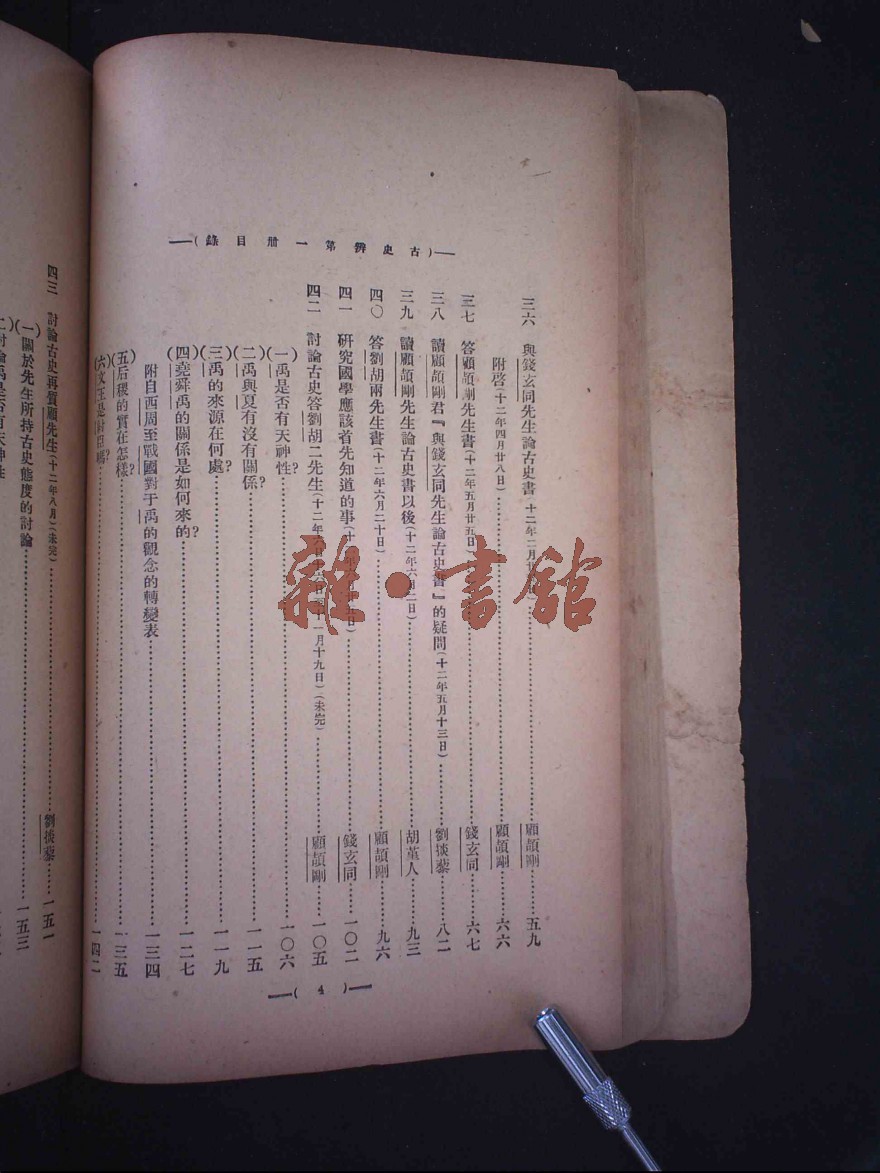 古史辨第一冊目錄
三六 與錢玄同先生論古史書 十二年二月廿 顧頡剛 五九
附啓(十二年四月廿八日) 顧頡剛 六六
三七 答顧頡剛先生書(十二年五月廿五日) 錢玄同 六七
三八 讀顧頡剛君『與錢玄同先生論古史書』的疑問(十二年五月十三日) 劉掞藜 八二
三九 讀顧頡剛先生論古史書以後(十二年六月二日) 胡堇人 九三
四〇 答劉胡兩先生書(十二年六月二十日) 顧頡剛 九六
四一 研究國學應該首先知道的事 錢玄同 一〇二
四二 討論古史答劉胡二先生(十二年 十一月十九日)(未完) 顧頡剛 一〇五
(一)禹是否有天神性? 一〇六
(二)禹與夏有沒有關係? 一一五
(三)禹的來源在何處? 一一九
(四)堯舜禹的關係是如何來的? 一二七
附自西周至戰國對于禹的觀念的轉變表 一三四
(五)后稷的實在怎樣? 一三五
(六)文王是紂臣嗎? 一四二
(4)
四三 討論古史再質顧先生(十二年八月)(未完) 劉掞藜 一五一
(一)關於先生所持古史態度的討論 一五三
(二)討論禹是否有天神性
雜·書館